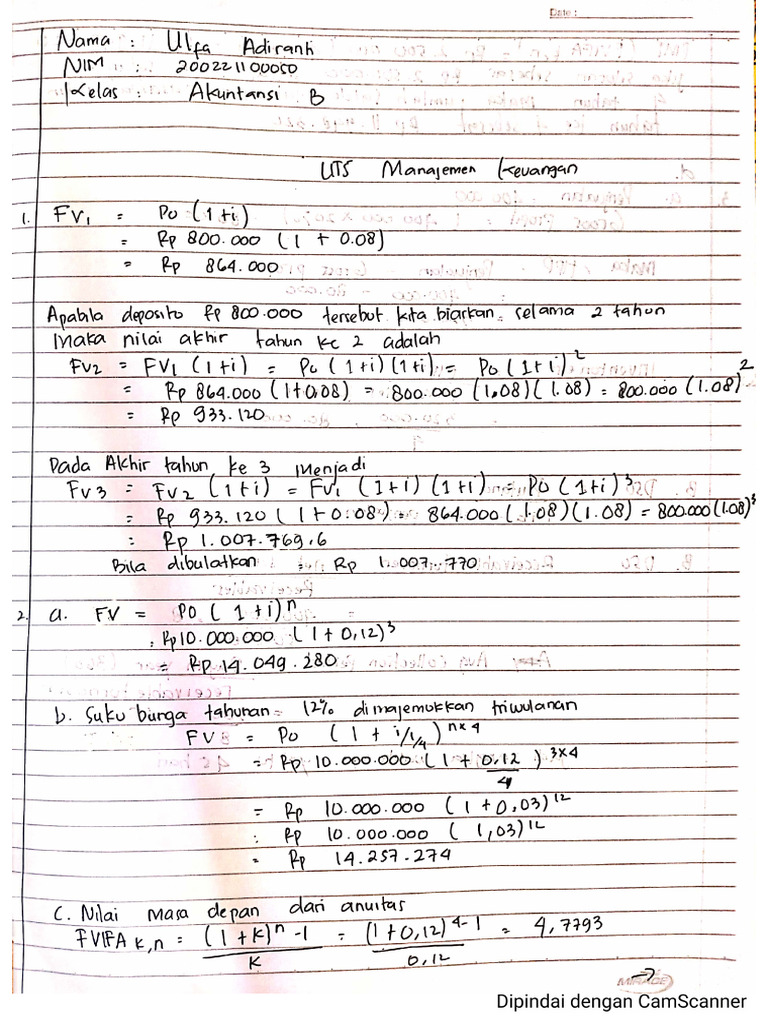 Date :
Nama : Ulfa Adiranti
NIM : 200221100050
Kelas : Akuntansi B
UTS Manajemen Keuangan
1. FV1 = Po (1+i)
= Rp 800.000 (1 + 0.08)
= Rp 864.000
Apabila deposito Rp 800.000 tersebut kita biarkan selama 2 tahun
Maka nilai akhir tahun ke 2 adalah
FV2 = FV1 (1+i) = Po (1+i) (1+i) = Po (1+i)²
= Rp 864.000 (1+0,08) = 800.000 (1,08)(1.08) = 800.000 (1.08)²
= Rp 933.120
Pada Akhir tahun ke 3 menjadi
FV3 = FV2 (1+i) = FV1 (1+i) (1+i) = Po (1+i)³
= Rp 933.120 (1+0.08) = 864.000 (1.08)(1.08) = 800.000 (1.08)³
= Rp 1.007.769,6
Bila dibulatkan = Rp 1.007.770
2. a. FV = Po (1+i)ⁿ
= Rp 10.000.000 (1+0,12)³
= Rp 14.049.280
b. Suku bunga tahunan = 12% dimajemukkan triwulanan
FV = Po (1 + i/1/4) n×4
= Rp 10.000.000 (1 + 0,12/4) 3×4
= Rp 10.000.000 (1+0,03)¹²
= Rp 10.000.000 (1,03)¹²
= Rp 14.257.274
C. Nilai Masa depan dari anuitas
FVIFA k,n = (1+k)ⁿ -1 / k = (1+0,12)⁴-1 / 0,12 = 4,7793
MIRAGE
Dipindai dengan CamScanner